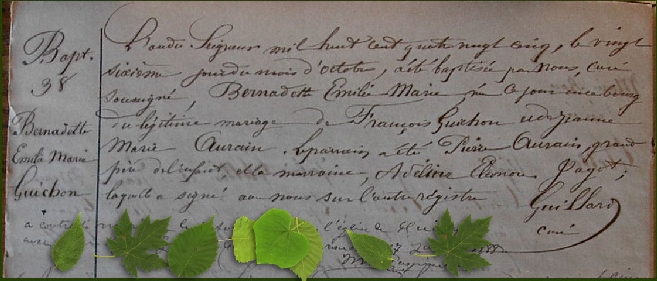 Bapt.
98
Bernadette
Emilie Marie
Guichon
L'an du Seigneur mil huit cent quatre vingt cinq, le vingt
sixième jour du mois d'octobre, a été baptisée par Nous, curé
soussigné, Bernadette Emilie Marie née le jour
du légitime mariage de François Guichon et de Jeanne
Marie Aurain. Le parrain a été Pierre Aurain, grand
père de l'enfant, et la marraine, Adeline Pagot,
laquelle a signé avec nous sur l'autre registre
Guillard
curé
a contracté
avec
l'église de